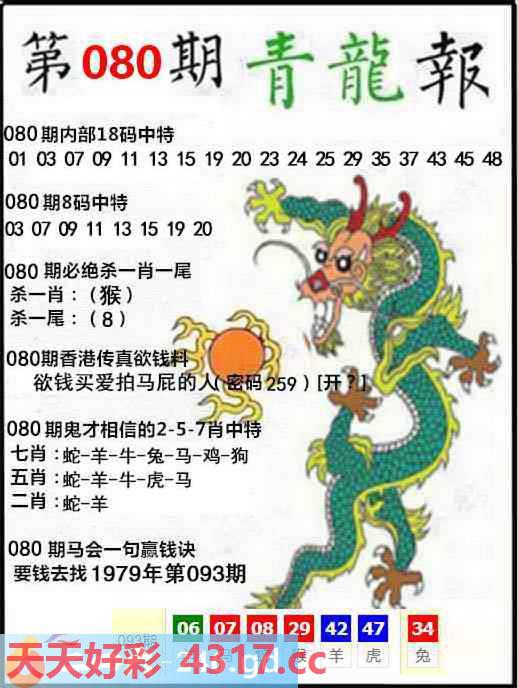 第080期 青龍報
080期内部18码中特
01 03 07 09 11 13 15 19 20 23 24 25 29 35 37 43 45 48
080期8码中特
03 07 09 11 13 15 19 20
080期必绝杀一肖一尾
杀一肖：(猴)
杀一尾：(8)
080期香港传真欲钱料
欲钱买爱拍马屁的人(密码259)[开?]
080期鬼才相信的2-5-7肖中特
七肖：蛇-羊-牛-兔-马-鸡-狗
五肖：蛇-羊-牛-虎-马
二肖：蛇-羊
080期马会一句赢钱诀
要钱去找1979年第093期
06 07 08 29 42 47 34
093期 猴 羊 虎 兔
天天好彩 4317.cc